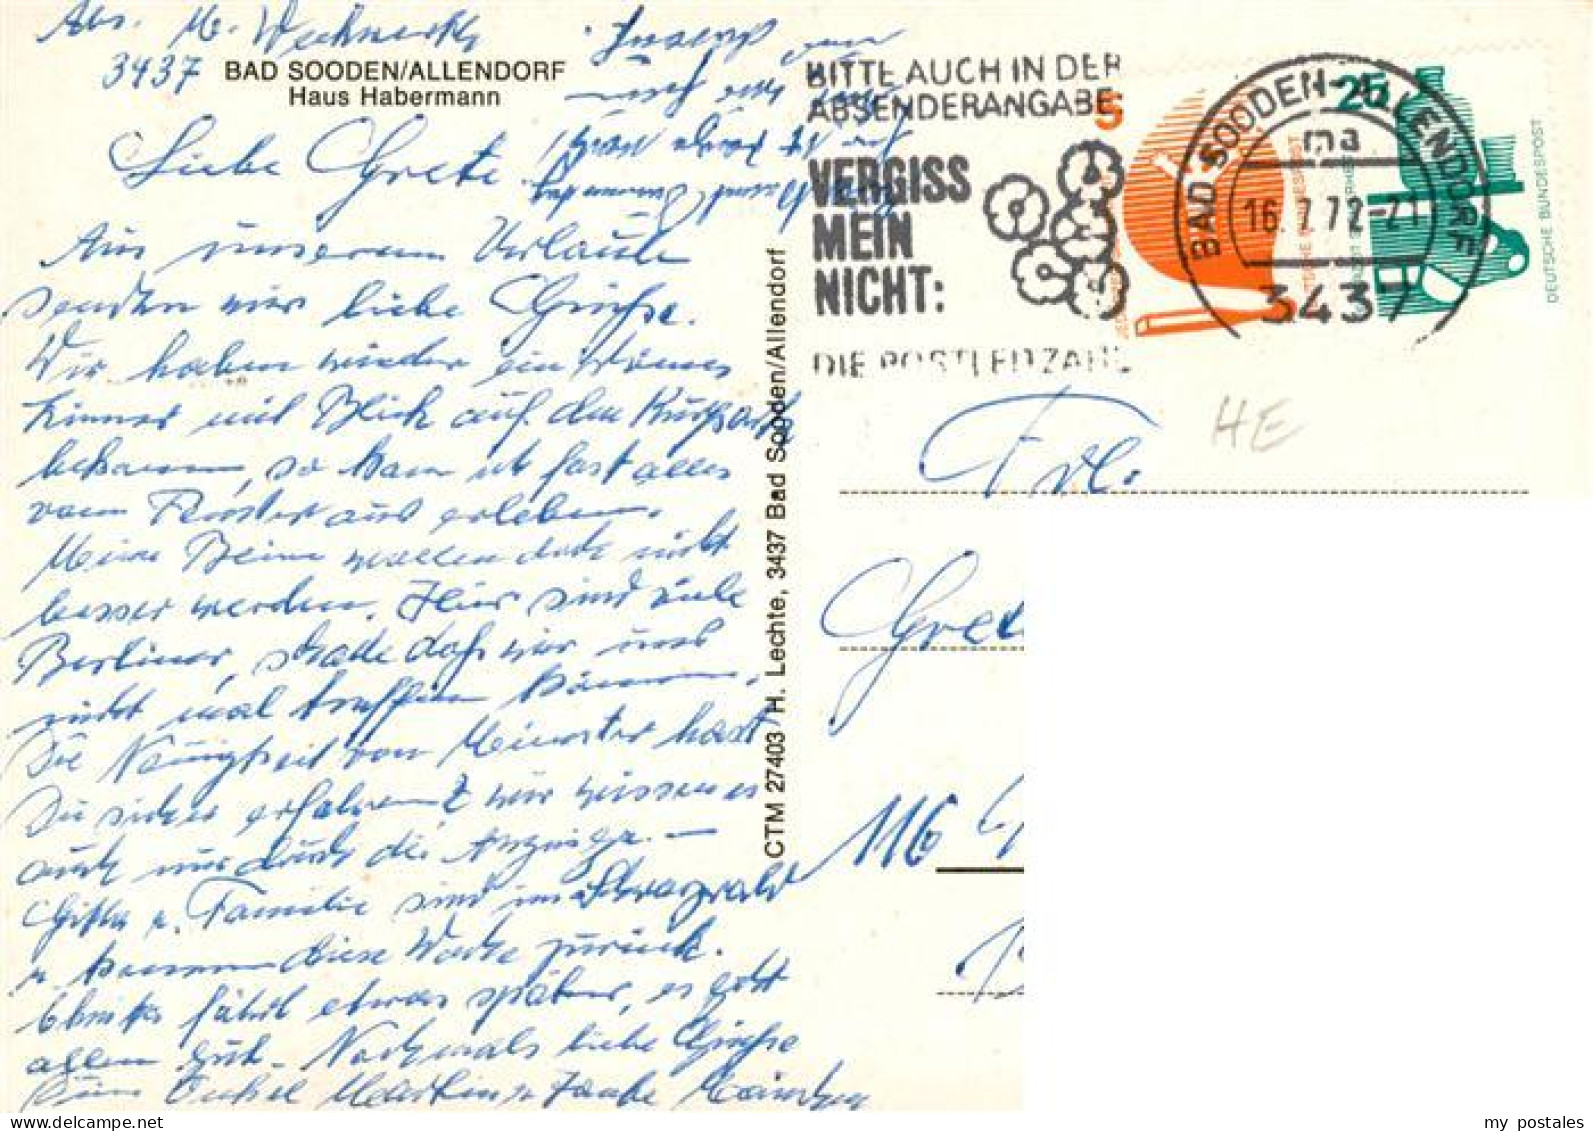 Abs. M.
3437 BAD SOODEN/ALLENDORF
Haus Habermann
Liebe Grete
Aus unserem Urlaub
senden wir liebe Grüße.
Wir haben wieder ein schönes
Zimmer mit Blick auf den Kurpark
bekommen, so kann ich fast alles
vom Fenster aus erleben.
Meine Beine wollen doch nicht
besser werden. Hier sind viele
Berliner, schade daß wir uns
nicht mal treffen können.
Die Neuigkeit von Münster hast
Du sicher erfahren wir wissen es
auch nur durch die Anzeige. —
u. Familie sind im Schwarzwald
u. kommen diese Woche zurück.
fährt etwas später, es geht
allen gut. Nochmals liebe Grüße
Onkel Martin u. Tante
CTM 27403 H. Lechte, 3437 Bad Sooden/Allendorf
BITTE AUCH IN DER
ABSENDERANGABE
VERGISS
MEIN
NICHT:
DIE POSTLEITZAHL
5
25
DEUTSCHE BUNDESPOST
BAD SOODEN-ALLENDORF
ma
16.7.72-21
3437
HE
Frl.
Grete
116
my postales